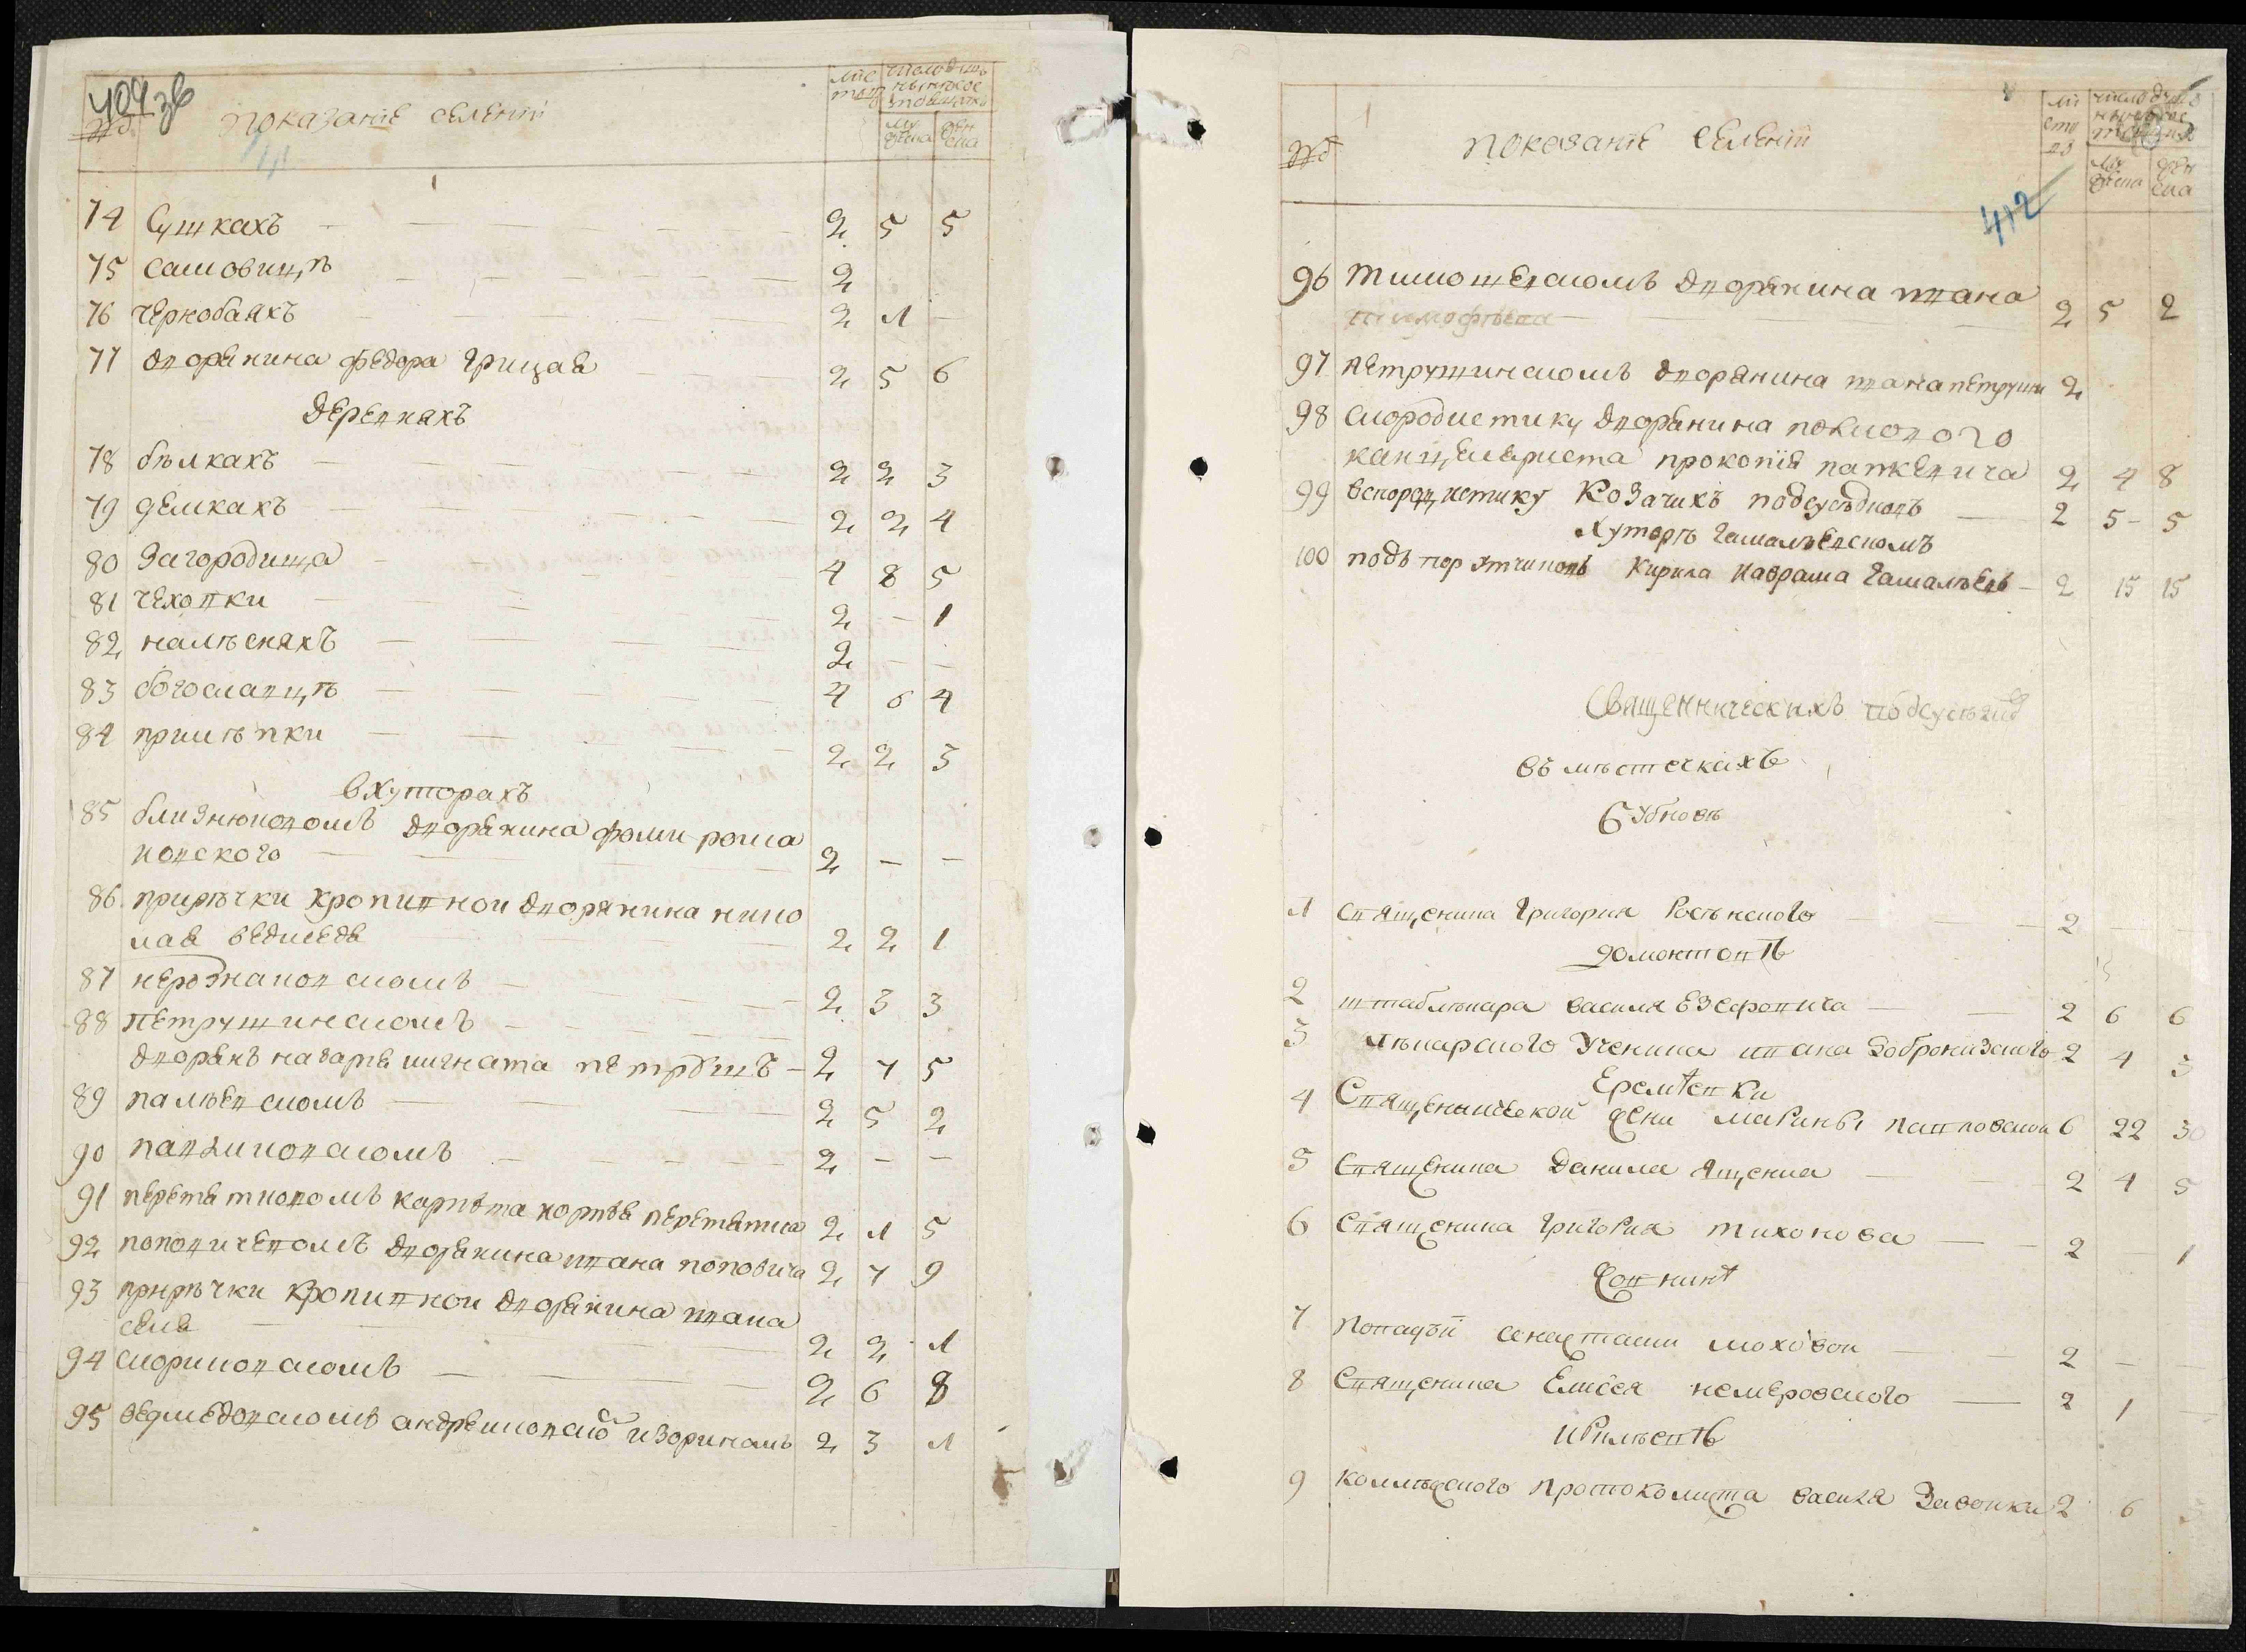 404 зв
№
показание селений
число душъ
му
жеска
жен
ска
74 Сушкахъ 2 5 5
75 Самовицѣ 2
76 чернобаяхъ 2 1
77 дворянина федора грицая 2 5 6
деревняхъ
78 бѣлкахъ 2 2 3
79 демкахъ 2 2 4
80 Загородища 4 8 5
81 чеховки 2 - 1
82 налѣсняхъ 2 - -
83 богославцѣ 4 6 4
84 прилѣпки 2 2 3
в хуторахъ
85 близнюковомъ дворянина фоми рома
ковского 2 - -
86 прирѣчки кропивной дворянина нико
лая ведмедя 2 2 1
87 нерознаковскомъ 2 3 3
88 петрушинскомъ
дворянъ назаря игната 2 7 5
89 палѣевскомъ 2 5 2
90 2 - -
91 перетятковомъ перетятка 2 1 5
92 поповичевомъ дворянина ивана поповича 2 7 9
93 прирѣчки кропивной дворянина ивана
2 2 1
94 скориковскомъ 2 6 8
95 ведмедовскомъ 2 3 1
№
показание селений
число душъ
му
жеска
жен
ска
412
96 тимошевскомъ дворянина ивана
тимофѣева 2 5 2
97 петрушинскомъ дворянина ивана петрушки 2
98 скородистику дворянина полкового
канцеляриста прокопия папкевича 2 4 8
99 вскородистику Козачихъ подсусѣдковъ 2 5 - 5
Хуторѣ Гамалѣевскомъ
100 подъ порутчиковъ Кирила Гамалѣевъ 2 15 15
Священническихъ подсусѣд
въ мѣстечкахъ
Бубновѣ
1 священика григория Росѣнского 2
домонтовѣ
2 штаблѣкара василя Езефовича 2 6 6
3 лѣкарского Ученика ивана Добронизского 2 4 3
Еремѣевки
4 Священической жени Марины павловской 6 22 30
5 Священика Данила Ященка 2 4 5
6 Священика григория тихонова 2 - 1
жовнинѣ
7 попадьи анастасии моховои 2 - -
8 Священика Елисея немеровского 2 1
ирклѣевѣ
9 коллѣжского протоколиста василя 2 6